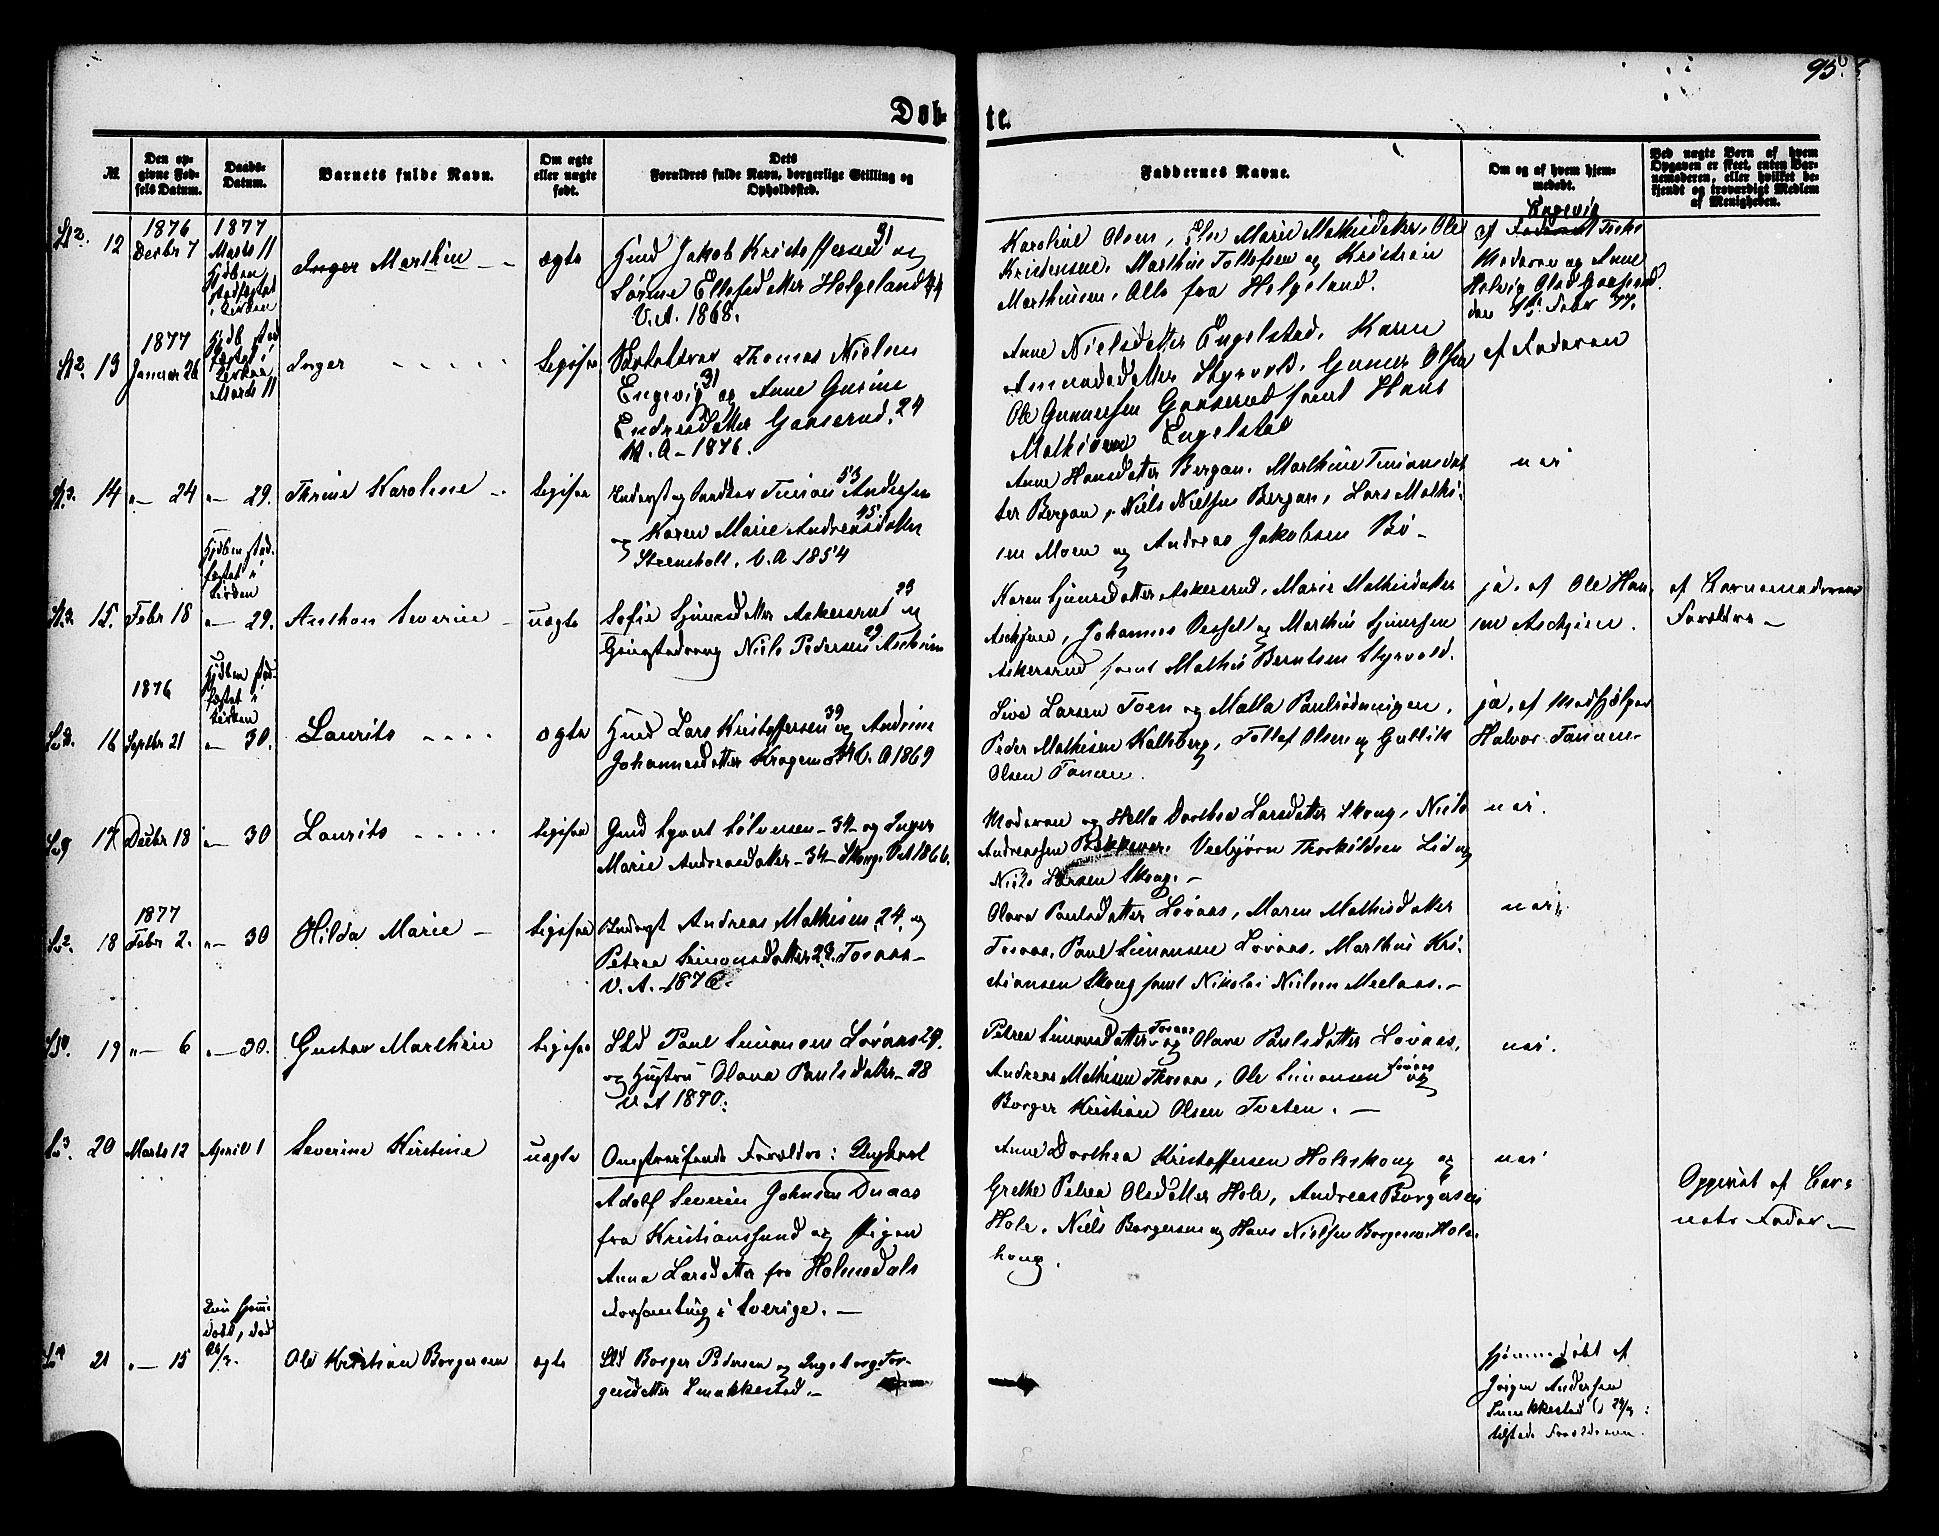 95
Døb-
te.
№.
Den op-
givne Fød-
sels Datum.
Daabs-
Datum.
Barnets fulde Navn.
Om ægte
eller uægte
født.
Dets
Forældres fulde Navn, borgerlige Stilling og
Opholdssted.
Faddernes Navne.
Om og af hvem hjem-
medøbt.
Ved uægte Børn af hvem
Opgaven er skeet, enten Bar-
nemoderen, eller hvilket be-
kjendt og troværdigt Medlem
af Menigheden.
12
1876
Decbr 7
1877
Marts 11
Hjdben
stadfæstet
i Kirken
Inger Marthin
ægte
Hmd Jakob Kristoffersen 31 og
Sørine Ellefsdatter Helgeland 44
V.A. 1868.
Karoline Olsen, Else Marie Mathisdatter, Ole
Kristensen, Marthin Tollefsen og Kristian
Marthinsen, Alle fra Helgeland.
Engevig
af
Moderen og Anne
13
1877
Januar 26
Hjdb stad
fæstet i
Kirken
Marts 11
Inger
ligesaa
Thomas Nielsen
Engevig 31 og Anne Gurine
Endresdatter Gaaserud, 24
V.A - 1876.
Anne Nielsdatter Engelstad, Karen
Amundsdatter Styrvold, Gunner Olsen
Ole Gunnersen Gaaserud samt Hans
Mathisen Engelstad
af Faderen
14
" — 24
" — 29.
Thrine Karoline
ligesaa
Simon Andersen 53
og Karen Marie Andreasdatter 45
Steensholt. V.A 1854
Anne Hansdatter Bergan, Marthine Simonsdat
ter Bergan, Niels Nielsen Bergan, Lars Mathi-
sen Moen og Andreas Jakobsen Bø -
nei
15.
Febr 18
Hjdben stad-
fæstet i
Kirken
" — 29.
Anthon Severin
uægte
Sofie Simensdatter Askerserud 23 og
Niels Pedersen 29 Askheim
Karen Simensdatter Askerserud, Marie Mathisdatter
Askjem, Johannes Vessel og Marthin Simensen
Askerserud samt Mathis Berntsen Styrvold.
ja, af Ole Han-
sen Askjem.
af Barnemoderens
Forældre —
16
1876
Septbr 21
Hjdben stad-
fæstet i
Kirken
" — 30.
Laurits
ægte
Hmd Lars Kristoffersen 39 og Andrine
Johannesdatter Kragemo V. A 1869
Siva Larsen Toen og Malla
Peder Mathisen Kalleberg, Tollef Olsen og Gullik
Olsen Fanum.
ja, af Medhjælper
Halvor Fanum
17
Decbr 18
" — 30
Laurits
ligesaa
Gmd Syvert Sølvesen - 34 - og Inger
Marie Andreasdatter - 34 - Skoug. V.A 1866.
Moderen og Helle Dorthea Larsdatter Skoug, Niels
Andreassen Bakkever, Vebjørn Thorkildsen Lid og
Niels Larsen Skoug. —
nei.
18
1877
Febr 2.
" — 30
Hilda Marie —
ligesaa
Inderst Andreas Mathisen, 24, og
Petrea Simonsdatter 23. Fosaas —
V. A. 1876.
Olava Paulsdatter Lovaas, Maren Mathisdatter
Fosaas, Paul Simonsen Lovaas, Marthin Kri-
stiansen Skoug samt Nikolai Nielsen Meelaas. —
nei.
19
" — 6
" — 30.
Gustav Marthin
ligesaa
Sld Paul Simonsen Lovaas 29.
og Hustru Olava Paulsdatter - 28
V.A 1870.
Petrea Simonsdatter Fosaas og Olava Paulsdatter Lovaas,
Andreas Mathisen Fosaas, Ole Simonsen Lovaas og
Borger Kristian Olsen Tveten. —
nei.
20
Marts 12
April 1
Severine Kirstine
uægte
Omstreifende Forældre: Ungkarl
Adolf Severin Johnsen Duaas
fra Kristianssund og Pigen
Anna Larsdatter fra Holmedals
Forsamling i Sverige. —
Anne Dorthea Kristoffersen Holeskoug og
Grethe Petrea Olsdatter Hole, Andreas Borgersen
Hole, Niels Borgersen og Hans Nielsen Borgersen Hole-
houg.
nei
Opgivet af Bar-
nets Fader —
21
" — 15
Kun hjem-
døbt, død
Ole Kristian Borgersen
ægte
Sld Borger Pedersen og Ingeborg Jør-
gensdatter Smukkestad. —
hjemmedøbt af
Jørgen Andersen
Smukkestad
Forældrene.